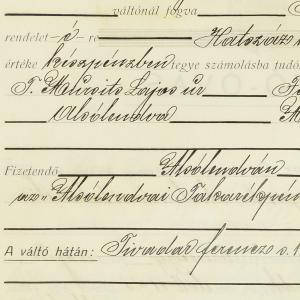 váltónál fogva
rendelet-é-re Hatszáz
értéke készpénzben tegye számolásba tudó
T. Mursits Lajos úr
Alsólendva
Fizetendő Alsólendván
az "Alsólendvai Takarékpén
A váltó hátán: Tivadar ferencz s. k